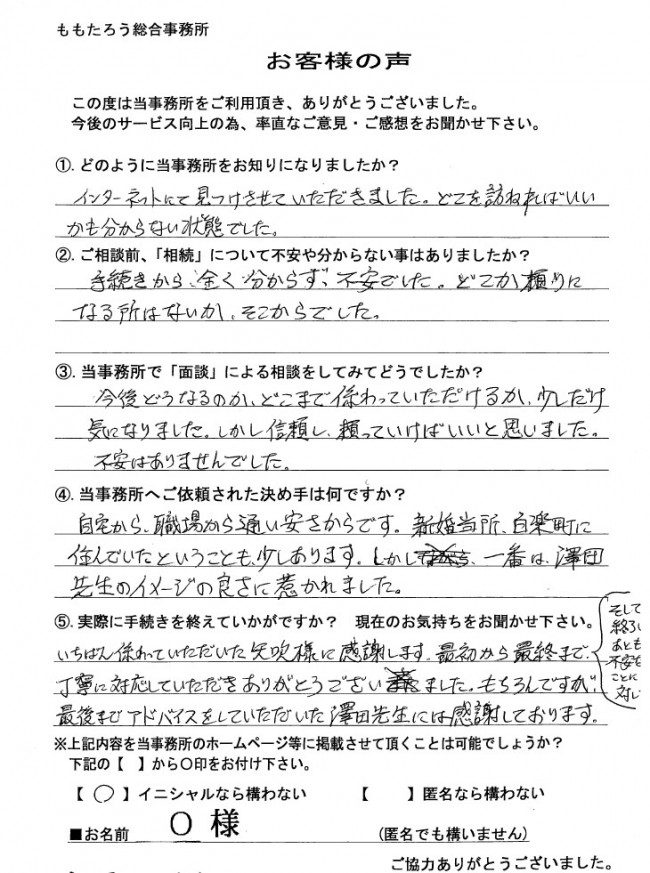 ももたろう総合事務所
お客様の声
この度は当事務所をご利用頂き、ありがとうございました。
今後のサービス向上の為、率直なご意見・ご感想をお聞かせ下さい。
①. どのように当事務所をお知りになりましたか？
インターネットにて見つけさせていただきました。どこを訪ねればいい
かも分からない状態でした。
②. ご相談前、「相続」について不安や分からない事はありましたか？
手続きから、全く分からず、不安でした。どこか頼りに
なる所はないか、そこからでした。
③. 当事務所で「面談」による相談をしてみてどうでしたか？
今後どうなるのか、どこまで係わっていただけるか、少しだけ
気になりました。しかし信頼し、頼っていけばいいと思いました。
不安はありませんでした。
④. 当事務所へご依頼された決め手は何ですか？
自宅から、職場から通い安さからです。新婚当所、白楽町に
住んでいたということも、少しあります。しかし、一番は、澤田
先生のイメージの良さに惹かれました。
⑤. 実際に手続きを終えていかがですか？　現在のお気持ちをお聞かせ下さい。
いちばん係わっていただいた矢吹様に感謝します。最初から最終まで、
丁寧に対応していただきありがとうございました。もちろんですが、
最後までアドバイスをしていただいた澤田先生には感謝しております。
そして
終ろ
あとも
不安を
ことに
対し
※上記内容を当事務所のホームページ等に掲載させて頂くことは可能でしょうか？
下記の【 】から〇印をお付け下さい。
【 〇 】イニシャルなら構わない　【　】匿名なら構わない
■お名前　O 様　（匿名でも構いません）
ご協力ありがとうございました。